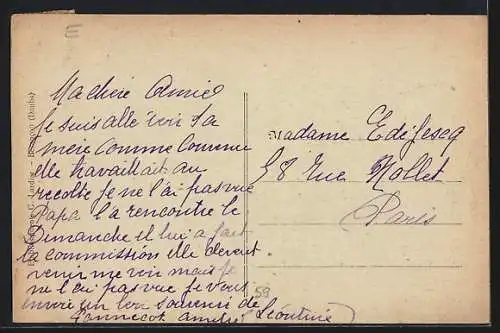 Ma chère Amie
Je suis allé voir Sa
mère comme Convenu
elle travaillait au
recolte je ne l'ai pas vue
Papa l'a rencontre le
Dimanche il lui a fait
la commission elle devait
venir me voir mais je
ne l'ai pas vue je vous
envoie un bon souvenir de Léontine
Madame Edifescq
58 rue Nollet
Paris
59